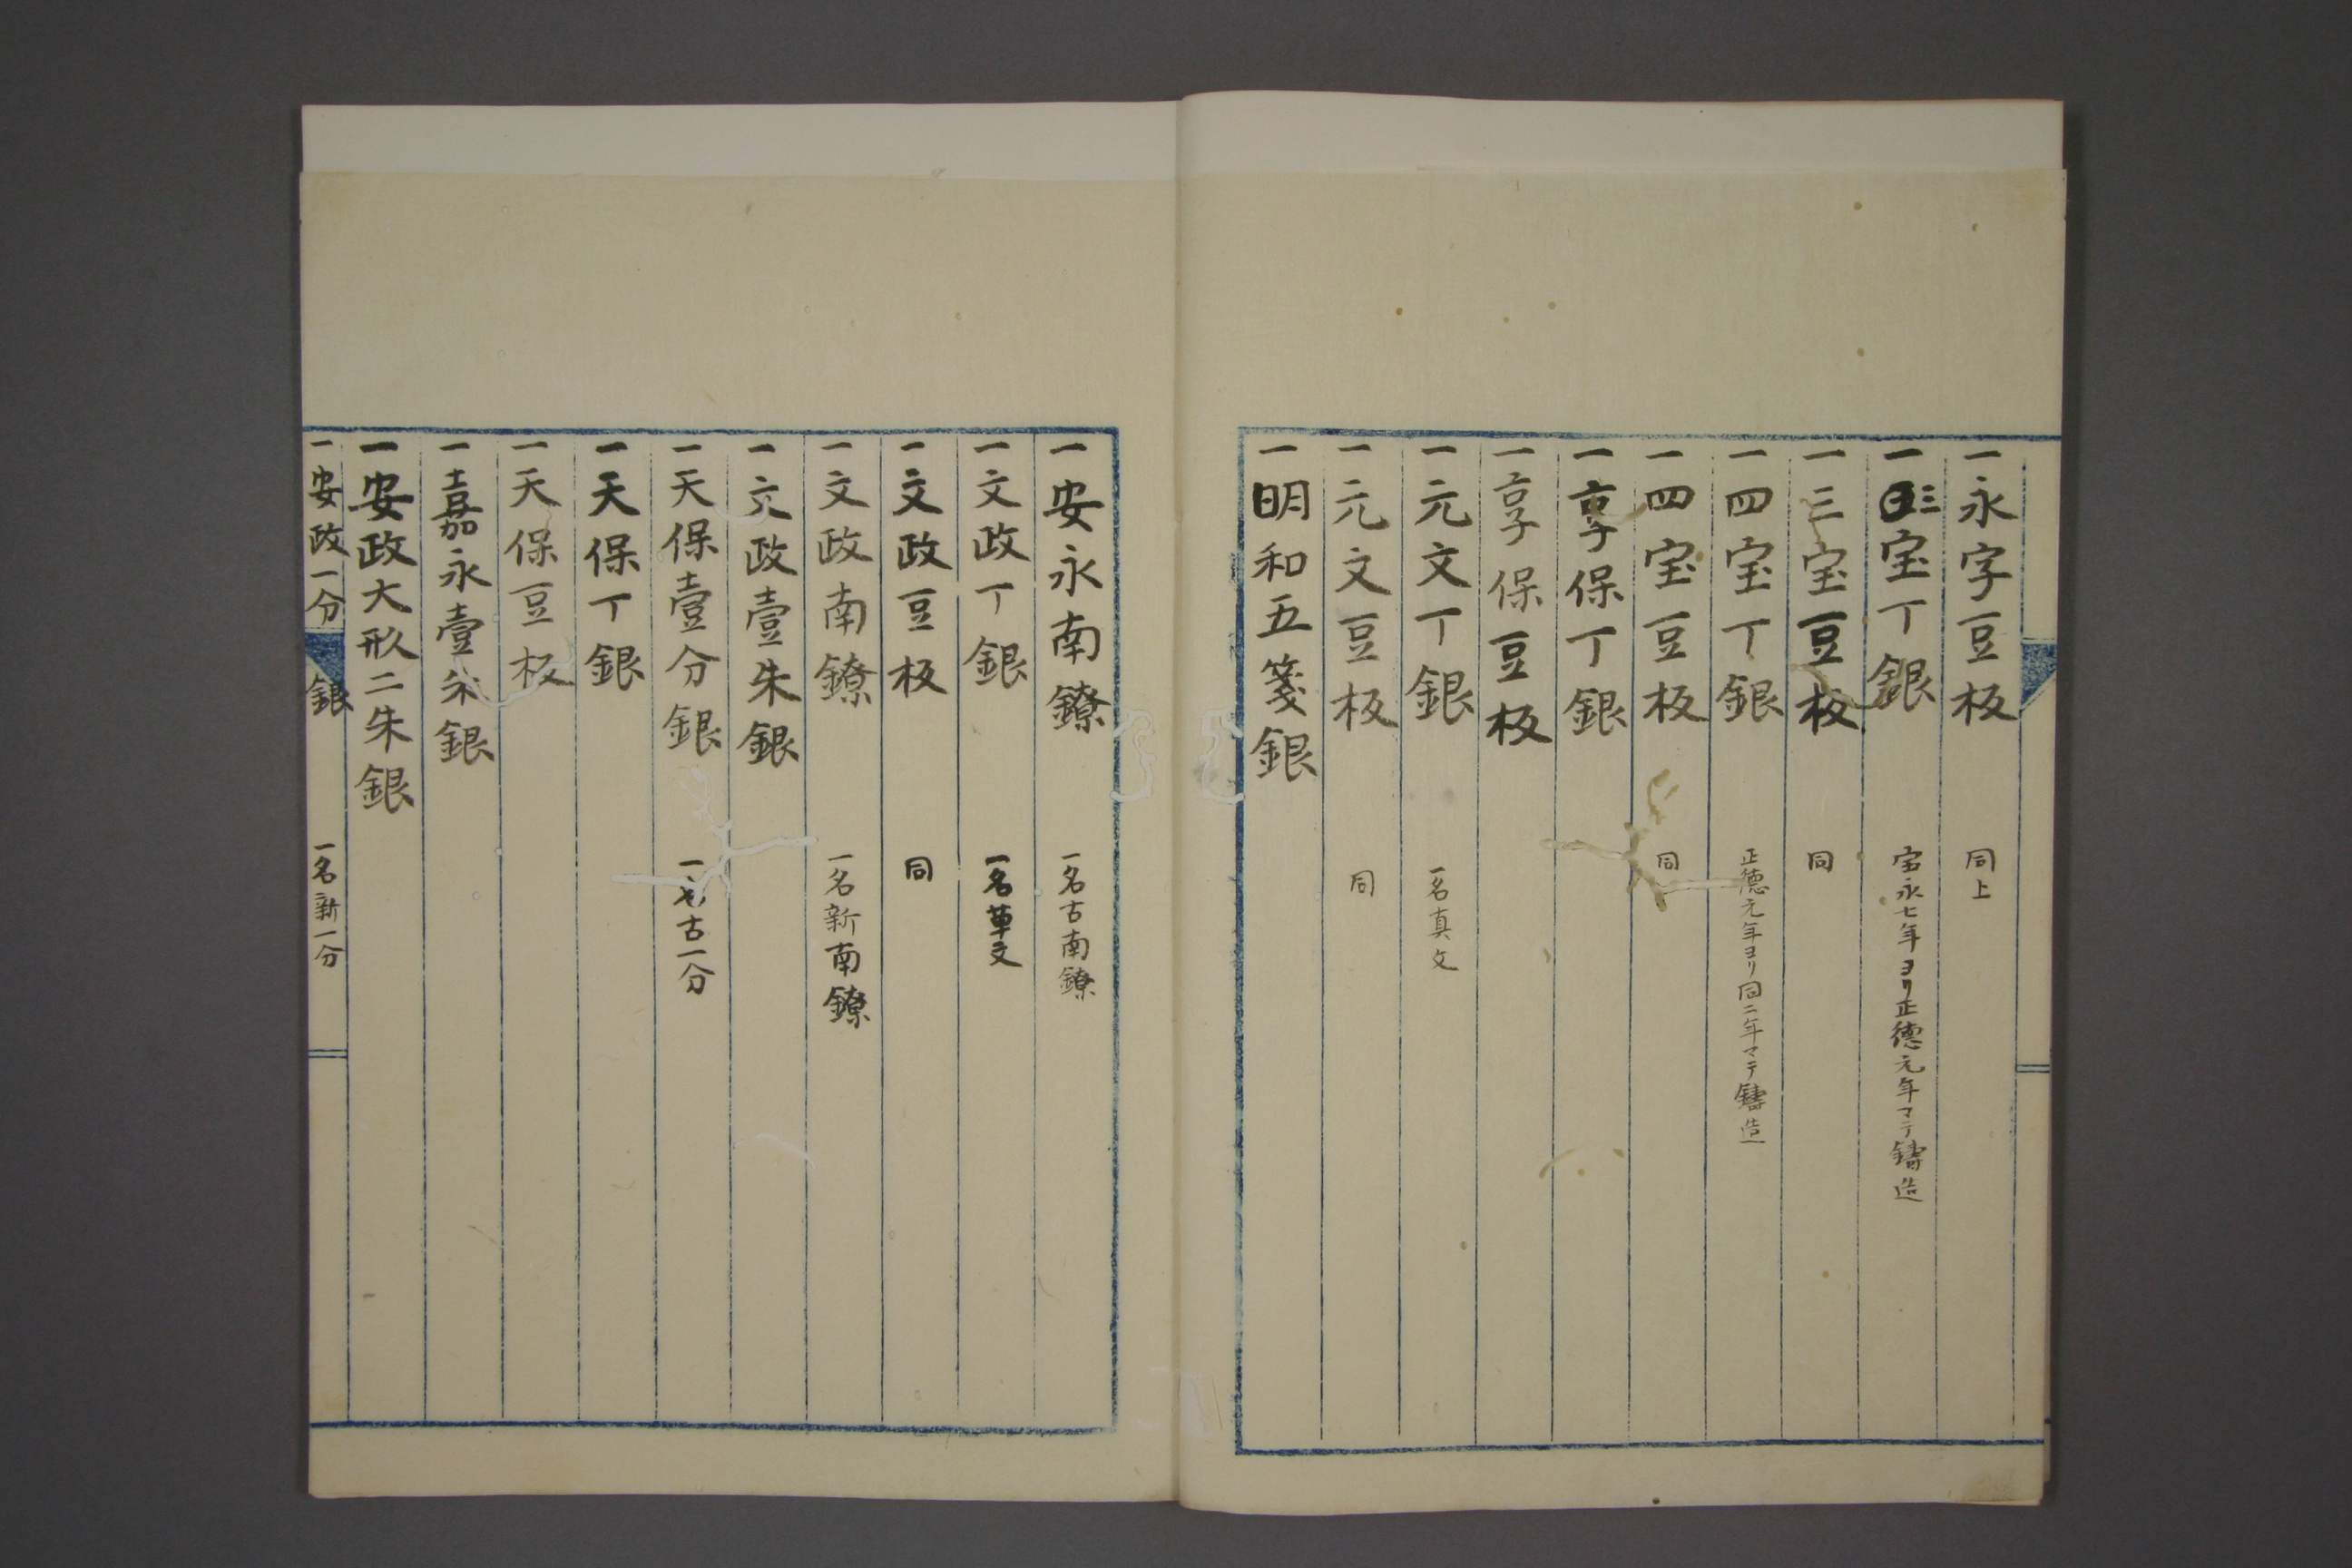 一永字豆板 同上
一三宝丁銀 宝永七年ヨリ正徳元年マテ鋳造
一三宝豆板 同
一四宝丁銀 正徳元年ヨリ同二年マテ鋳造
一四宝豆板 同
一享保丁銀
一享保豆板
一元文丁銀 一名真文
一元文豆板 同
一明和五箋銀
一安永南鐐 一名古南鐐
一文政丁銀 一名草文
一文政豆板 同
一文政南鐐 一名新南鐐
一文政壹朱銀
一天保壹分銀 一名古一分
一天保丁銀
一天保豆板
一嘉永壹朱銀
一安政大形二朱銀
一安政一分銀 一名新一分